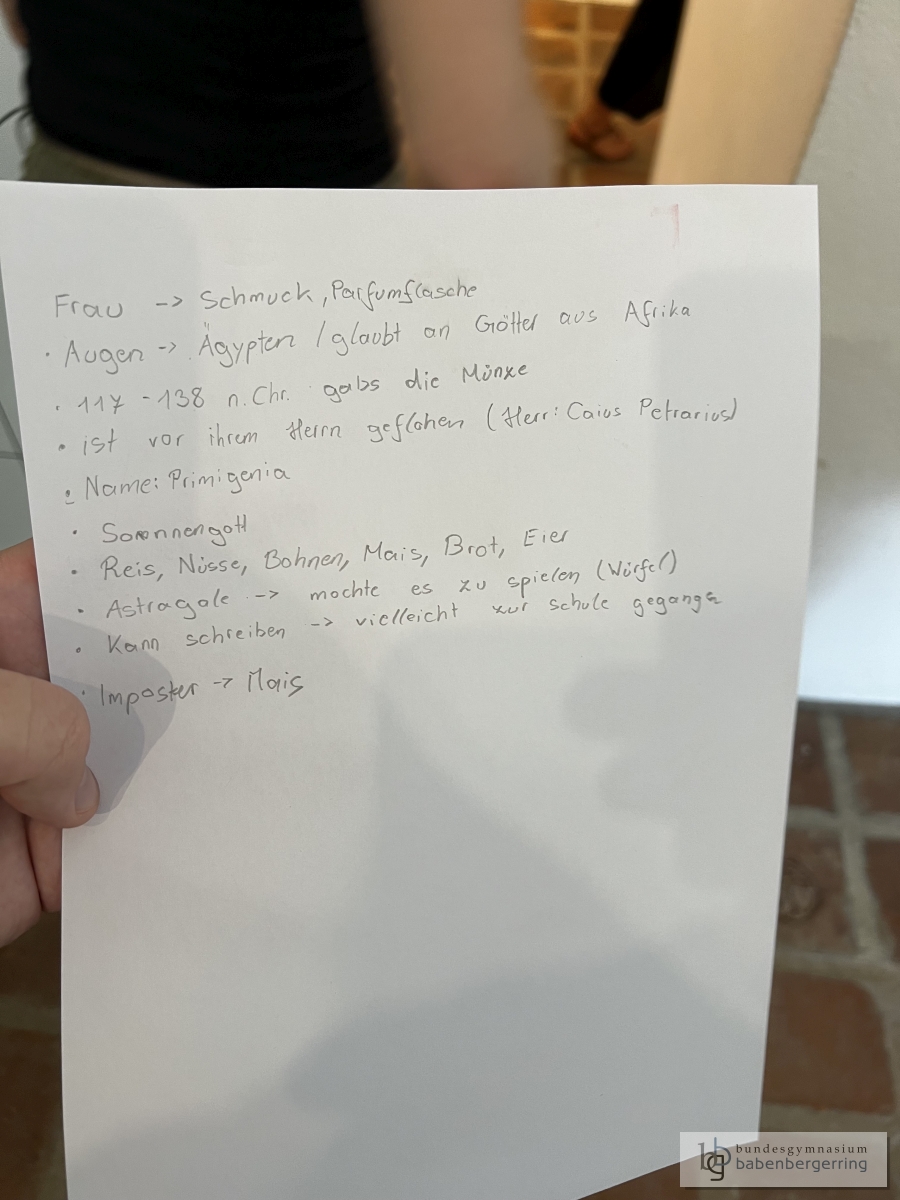 Frau -> Schmuck, Parfumflasche
· Augen -> Ägypten / glaubt an Götter aus Afrika
· 117 - 138 n. Chr. gabs die Münze
· ist vor ihrem Herrn geflohen (Herr: Caius Petrarius)
· Name: Primigenia
· Sonnengott
· Reis, Nüsse, Bohnen, Mais, Brot, Eier
· Astragale -> mochte es zu spielen (Würfel)
· Kann schreiben -> vielleicht zur schule gegangen
· Imposter -> Mais
bundesgymnasium
babenbergerring